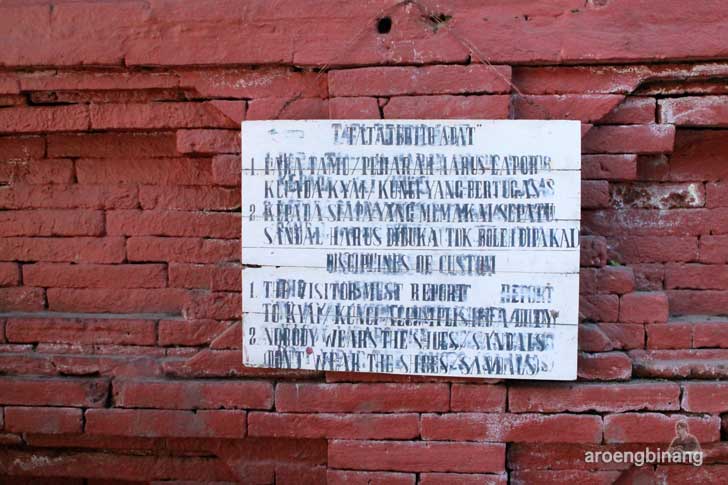 1. PARA TAMU/PEZIARAH HARUS LAPOR
KEPADA KYAI/KUNCI YANG BERTUGAS
2. KEPADA SIAPA YANG MEMAKAI/SEPATU
SANDAL HARUS DIBUKA TDK BOLEH DIPAKAI
DISCIPLINES OF CUSTOM
1. THE VISITORS MUST REPORT REPORT
TO KYAI/KUNCI
2. NOBODY WEARN THE SHOES/SANDALS
DON'T WEAR THE SHOES-SANDALS
aroengbinang